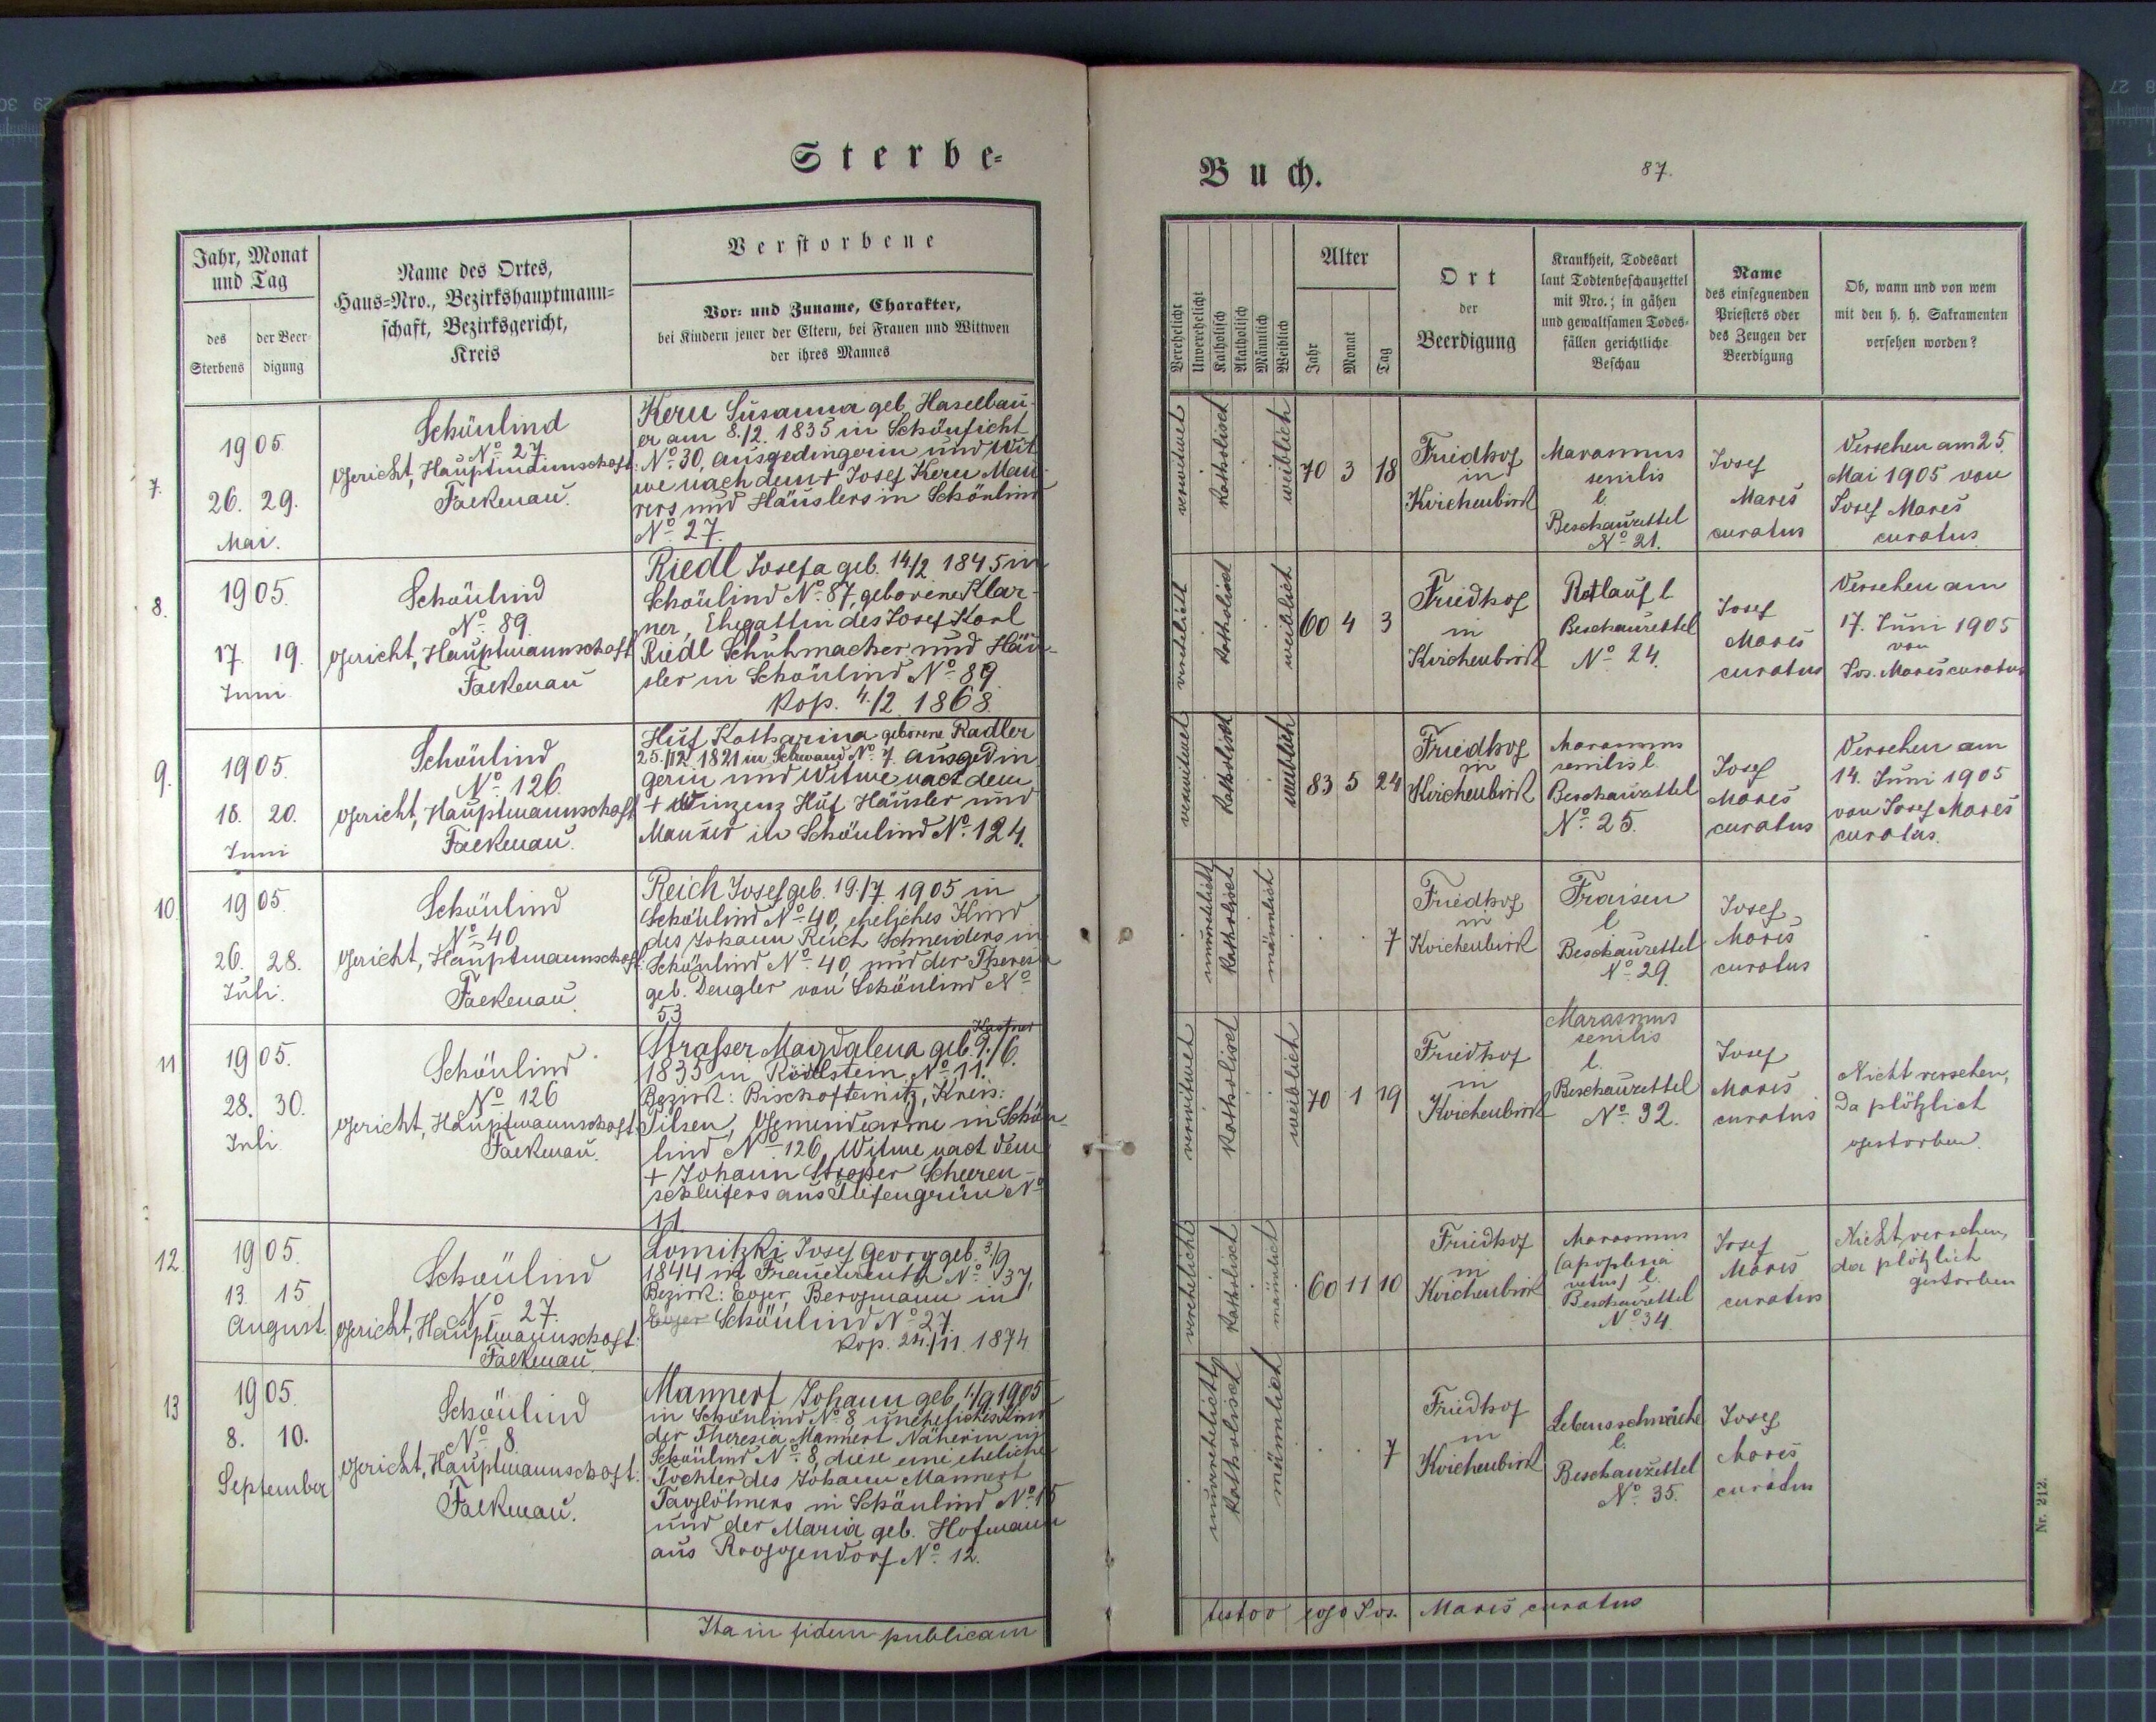 Sterbe-
Jahr, Monat
und Tag
des
Sterbens
der Beer-
digung
Name des Ortes,
Haus-Nro., Bezirkshauptmann-
schaft, Bezirksgericht,
Kreis
Verstorbene
Vor- und Zuname, Charakter,
bei Kindern jener der Eltern, bei Frauen und Wittwen
der ihres Mannes
7.
1905.
26. 29.
Mai.
Schönlind
No. 27.
Gericht, Hauptmannschaft:
Falkenau.
Kern Susanna geb. Haselbau-
er am 8./2. 1835 in Schönficht
No. 30, Ausgedingerin und Wit
we nach dem + Josef Kern Mau-
rers und Häuslers in Schönlind
No. 27.
8.
1905.
17. 19.
Juni
Schönlind
No. 89.
Gericht, Hauptmannschaft
Falkenau
Riedl Josefa geb. 14/2 1845 in
Schönlind No. 87, geborene Klar-
ner, Ehegattin des Josef Karl
Riedl Schuhmacher und Häu-
sler in Schönlind No. 89.
Kop. 4./2. 1868.
9.
1905.
18. 20.
Juni
Schönlind
No. 126.
Gericht, Hauptmannschaft
Falkenau.
Huf Katharina geborene Radler
25./12. 1821 in Schwand No. 7 Ausgedin
gerin und Witwe nach dem
+ Winzenz Huf Häusler und
Maurer in Schönlind No. 124.
10.
1905.
26. 28.
Juli.
Schönlind
No. 40
Gericht, Hauptmannschaft:
Falkenau
Reich Josef geb. 19./7. 1905 in
Schönlind No. 40, eheliches Kind
des Johann Reich Schneiders in
Schönlind No. 40, und der Theresia
geb. Dengler von Schönlind No.
53
11
1905.
28. 30.
Juli
Schönlind
No. 126
Gericht, Hauptmannschaft:
Falkenau.
Kastner
Strasser Magdalena geb. 9./6.
1835 in No. 11.
Bezirk: Bischofteinitz, Kreis:
Pilsen, Gemeindearme in Schön-
lind No. 126, Witwe nach dem
+ Johann Strasser Scheeren-
schleifers aus No.
11
12
1905.
13. 15.
August.
Schönlind
No. 27.
Gericht, Hauptmannschaft:
Falkenau
Lomitzki Josef Georg geb. 3./9
1844 in Frauenreuth No. 37,
Bezirk: Eger, Bergmann in
Eger Schönlind No. 27.
Kop. 24./11. 1874
13
1905.
8. 10.
September
Schönlind
No. 8
Gericht, Hauptmannschaft:
Falkenau.
Mannert Johann geb. 1./9 1905
in Schönlind No. 8 uneheliches Kind
der Theresia Mannert Näherin in
Schönlind No. 8, diese eine eheliche
Tochter des Johann Mannert
Taglöhners in Schönlind No. 15
und der Maria geb. Hofmann
aus Roggendorf No. 12.
Ita in fidem publicam
Buch.
87.
Verehelicht
Unverehelicht
Katholisch
Akatholisch
Männlich
Weiblich
Alter
Jahr
Monat
Tag
Ort
der
Beerdigung
Krankheit, Todesart
laut Todtenbeschauzettel
mit Nro.; in gähen
und gewaltsamen Todes-
fällen gerichtliche
Beschau
Name
des einsegnenden
Priesters oder
des Zeugen der
Beerdigung
Ob, wann und von wem
mit den h. h. Sakramenten
versehen worden?
verwitwet
katholisch
weiblich
70 3 18
Friedhof
in
Kirchenbirk
Marasmus
senilis
l.
Beschauzettel
No. 21.
Josef
Mareš
curatus
Versehen am 25.
Mai 1905 von
Josef Mareš
curatus
verehelicht
katholisch
weiblich
60 4 3
Friedhof
in
Kirchenbirk
Rotlauf l.
Beschauzettel
No. 24.
Josef
Mareš
curatus
Versehen am
17. Juni 1905
von
Jos. Mareš curatus
verwitwet
katholisch
weiblich
83 5 24
Friedhof
in
Kirchenbirk
Marasmus
senilis l.
Beschauzettel
No. 25.
Josef
Mareš
curatus
Versehen am
14. Juni 1905
von Josef Mareš
curatus.
unverehelicht
katholisch
männlich
7
Friedhof
in
Kirchenbirk
Fraisen
l
Beschauzettel
No. 29.
Josef
Mareš
curatus
verwitwet
katholisch
weiblich
70 1 19
Friedhof
in
Kirchenbirk
Marasmus
senilis
l.
Beschauzettel
No. 32.
Josef
Mareš
curatus
Nicht versehen,
da plötzlich
gestorben.
verehelicht
katholisch
männlich
60 11 10
Friedhof
in
Kirchenbirk
Marasmus
(apoplexia
l.
Beschauzettel
No. 34
Josef
Mareš
curatus
Nicht versehen,
da plötzlich
gestorben
unverehelicht
katholisch
männlich
7
Friedhof
in
Kirchenbirk
Lebensschwäche
l.
Beschauzettel
No. 35.
Josef
Mareš
curatus
testor ego Jos. Mareš curatus
Nr. 212.